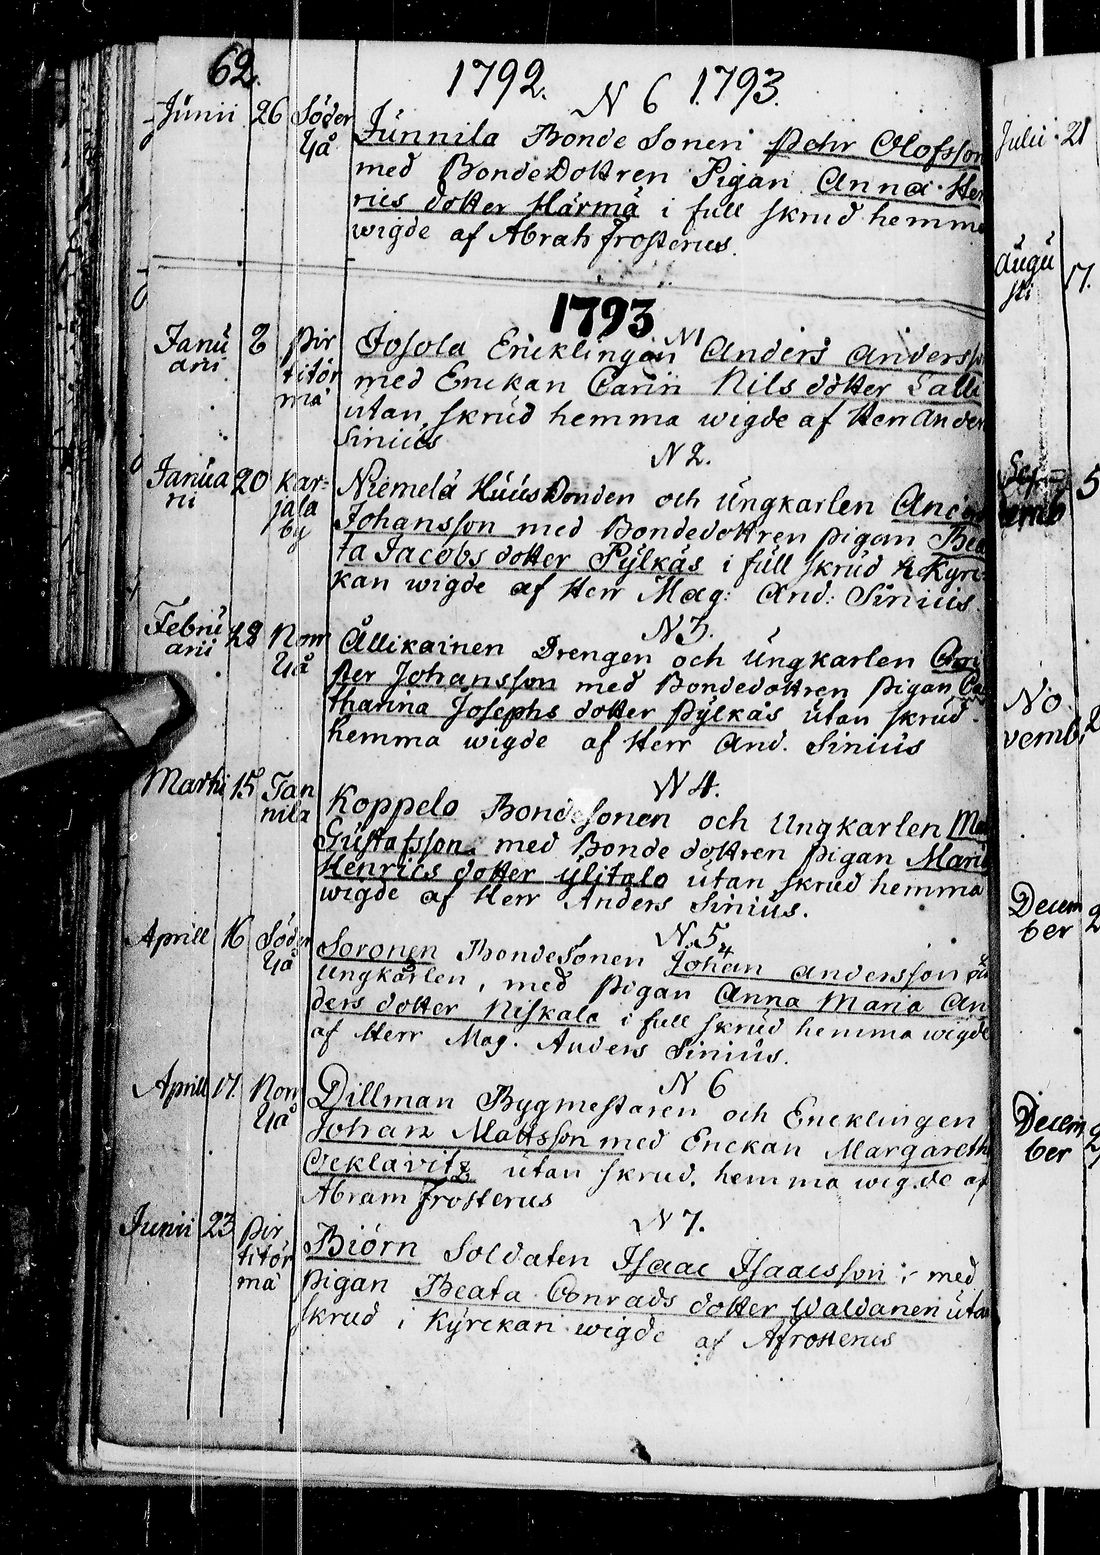 62.
1792. 1793.
N 6
Junii 26 Söder Yå
Junnila Bonde Sonen Pehr Olofsson
med BondeDottren Pigan Anna Hen
rics dotter Härmä i full skrud hemma
wigde af Abrah Frosterus.
1793
N1
Janu arii 2 Pir titör mä
Josola Encklingen Anders Andersson
med Enckan Carin Nils dotter Lalli
utan skrud hemma wigde af Herr Anders
Sinius
N 2.
Janua rii 20 Kar= jala by
Niemelä Huusbonden och Ungkarlen
Johansson med Bondedottren pigan Bea
ta Jacobs dotter Pylkäs i full skrud i Kyrc=
kan wigde af Herr Mag: And: Sinius.
N 3.
Febru arii 28 Norr Yå
Ållikainen Drengen och Ungkarlen
per Johansson med Bondedottren pigan Ca
tharina Josephs dotter Pylkäs utan skrud
hemma wigde af Herr And. Sinius
N 4.
Martii 15 Tan nila
Koppelo BondeSonen och Ungkarlen
Gustafsson med Bonde dottren pigan Maria
Henrics dotter Ylitalo utan skrud hemma
wigde af Herr Anders Sinius.
N. 5
Aprill 16 Söder Yå
Soronen BondeSonen Johan Andersson
Ungkarlen, med pigan Anna Maria An
ders dotter Niskala i full skrud hemma wigde
af Herr Mag. Anders Sinius.
N 6
Aprill 17. Norr Yå
Dillman Bygmestaren och Encklingen
Johan Mattsson med Enckan Margareth
Ocklavitz utan skrud. hemma wigde af
Abram Frosterus
N 7.
Junii 23 Pir titör mä
Biörn Soldaten Isaac Isaacsson med
pigan Beata Conrads dotter Waldanen utan
skrud i Kyrckan wigde af A Frosterus
Julii 21
Augu sti 17.
Sep= temb 5
No vemb. 2
Decem ber 2
Decem ber